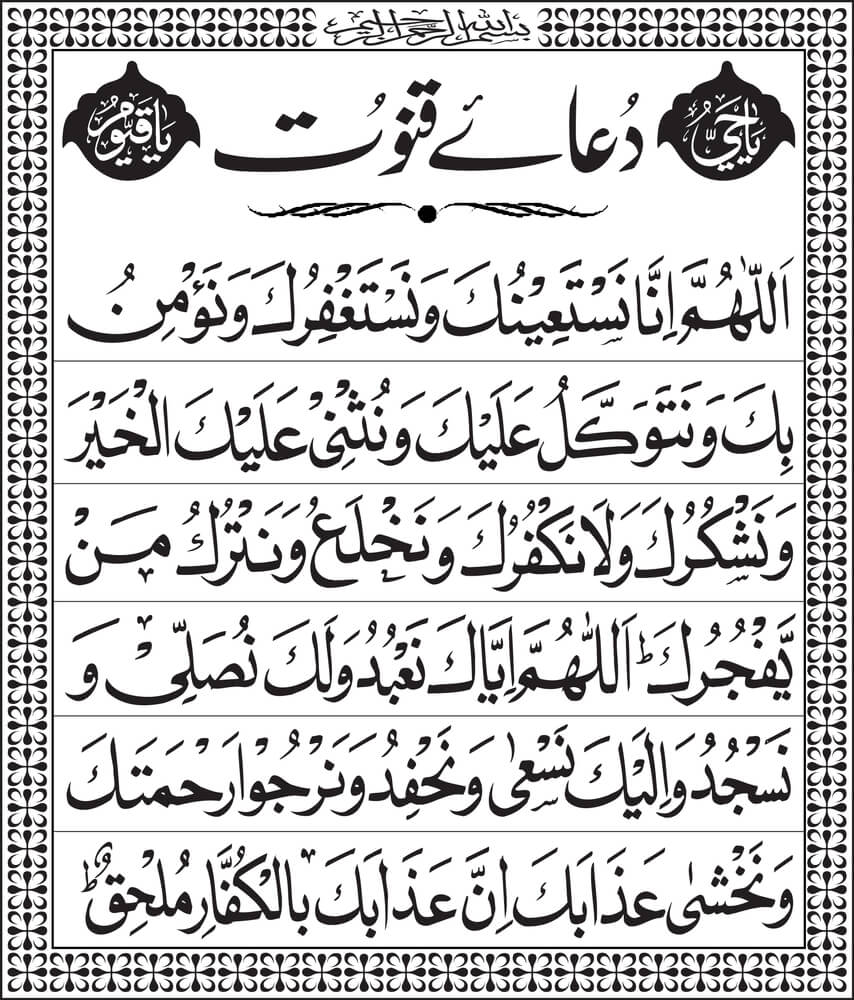 بسم الله الرحمن الرحيم
یَاحَیُّ
دُعائے قنوُت
یَاقَیُّوْمُ
اَللّٰهُمَّ اِنَّا نَسْتَعِیْنُكَ وَنَسْتَغْفِرُكَ وَنُؤْمِنُ
بِكَ وَنَتَوَكَّلُ عَلَیْكَ وَنُثْنِیْ عَلَیْكَ الْخَیْرَ
وَنَشْكُرُكَ وَلَا نَكْفُرُكَ وَنَخْلَعُ وَنَتْرُكُ مَنْ
یَّفْجُرُكَ ؕ اَللّٰهُمَّ اِیَّاكَ نَعْبُدُ وَلَكَ نُصَلِّیْ وَ
نَسْجُدُ وَاِلَیْكَ نَسْعٰی وَنَحْفِدُ وَنَرْجُوْا رَحْمَتَكَ
وَنَخْشٰی عَذَابَكَ اِنَّ عَذَابَكَ بِالْكُفَّارِ مُلْحِقٌ ؕ